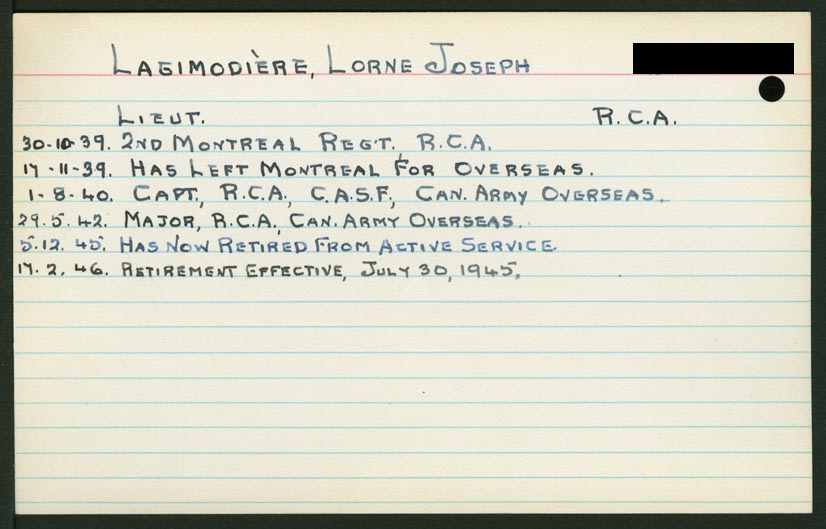 LAGIMODIÈRE, LORNE JOSEPH
LIEUT. R.C.A.
30-10-39. 2ND MONTREAL REG'T. R.C.A.
17-11-39. HAS LEFT MONTREAL FOR OVERSEAS.
1-8-40. CAPT., R.C.A., C.A.S.F., CAN. ARMY OVERSEAS.
29.5.42. MAJOR, R.C.A., CAN. ARMY OVERSEAS.
5.12.45. HAS NOW RETIRED FROM ACTIVE SERVICE.
17.2.46. RETIREMENT EFFECTIVE, JULY 30, 1945.